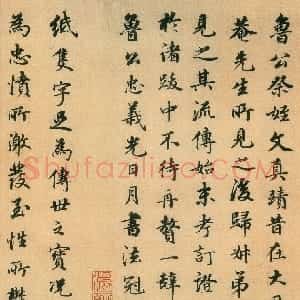 魯公祭姪文真蹟昔在大
菴先生所見之後歸姊弟
見之其流傳始末考訂證
於諸跋中不待再贅一辭
魯公忠義光日月書法冠
紙隻字足為傳世之寶況
為忠憤所激發至性所
Shufaziliao.com